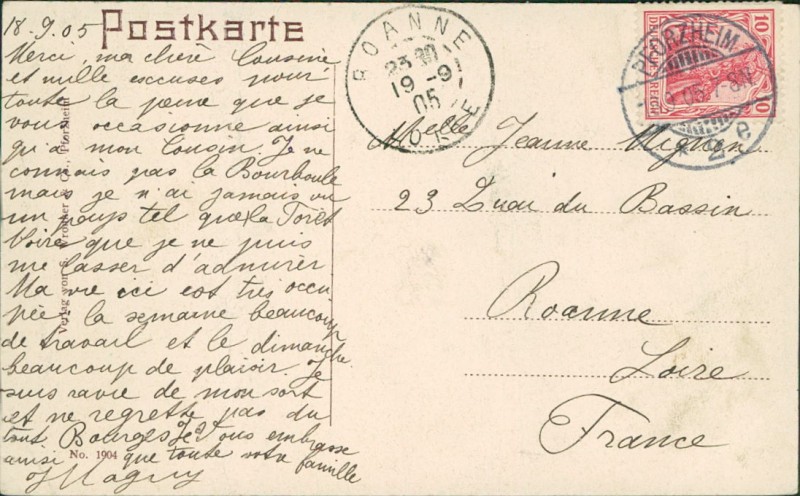 18.9.05
Postkarte
Merci, ma chère Cousine
et mille excuses pour
toute la peine que je
vous occasionne ainsi
qu'à mon Cousin. Je ne
connais pas la Bourboule
mais je n'ai jamais vu
un pays tel que la Forêt
Noire que je ne puis
me lasser d'admirer
Ma vie ici est très occu
pée, la semaine beaucoup
de travail et le dimanche
beaucoup de plaisir. Je
suis ravie de mon sort
et ne regrette pas du
tout Bourges. Je vous embrasse
ainsi que toute votre famille
No. 1904
Verlag von
Pforzheim
ROANNE
23
19-9
05
LOIRE
DEUTSCHES REICH
10
10
PFORZHEIM
05 7-8N
* 2 e
Melle Jeanne Mignon
23 Quai du Bassin
Roanne
Loire
France